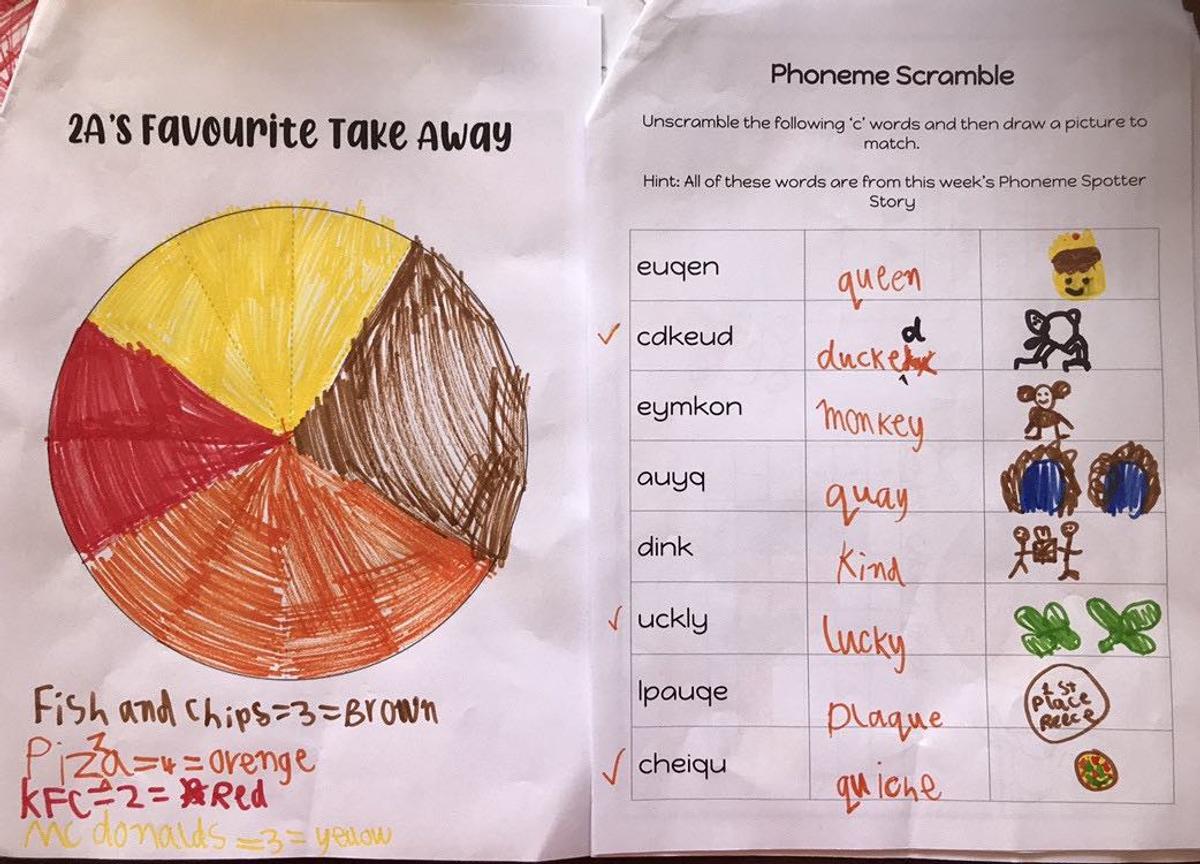 2A's Favourite Take Away
Fish and Chips=3=Brown
Pizza=4=orenge
KFC=2=Red
Mc donalds=3=yellow
Phoneme Scramble
Unscramble the following 'c' words and then draw a picture to
match.
Hint: All of these words are from this week's Phoneme Spotter
Story
euqen queen
cdkeud ducked
eymkon monkey
auyq quay
dink Kind
uckly lucky
lpauqe Plaque
1st
place
Reece
cheiqu quiche